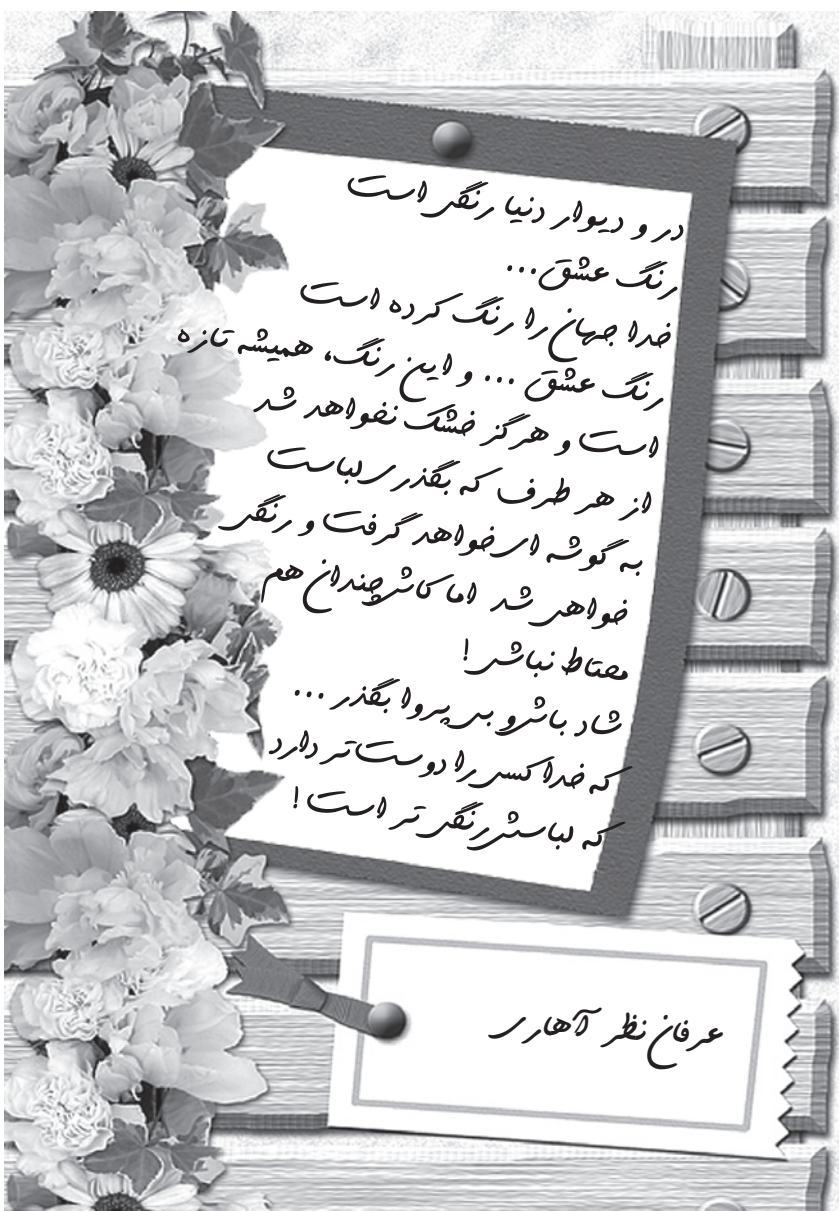 در و دیوار دنیا رنگی است
رنگ عشق...
خدا جهان را رنگ کرده است
رنگ عشق ... و این رنگ، همیشه تازه
است و هرگز خشک نخواهد شد
از هر طرف که بگذری لباست
به گوشه ای خواهد گرفت و رنگی
خواهی شد اما کاش چندان هم
محتاط نباشی!
شاد باش و بی پروا بگذر ...
که خدا کسی را دوست تر دارد
که لباسش رنگی تر است!
عرفان نظر آهاری